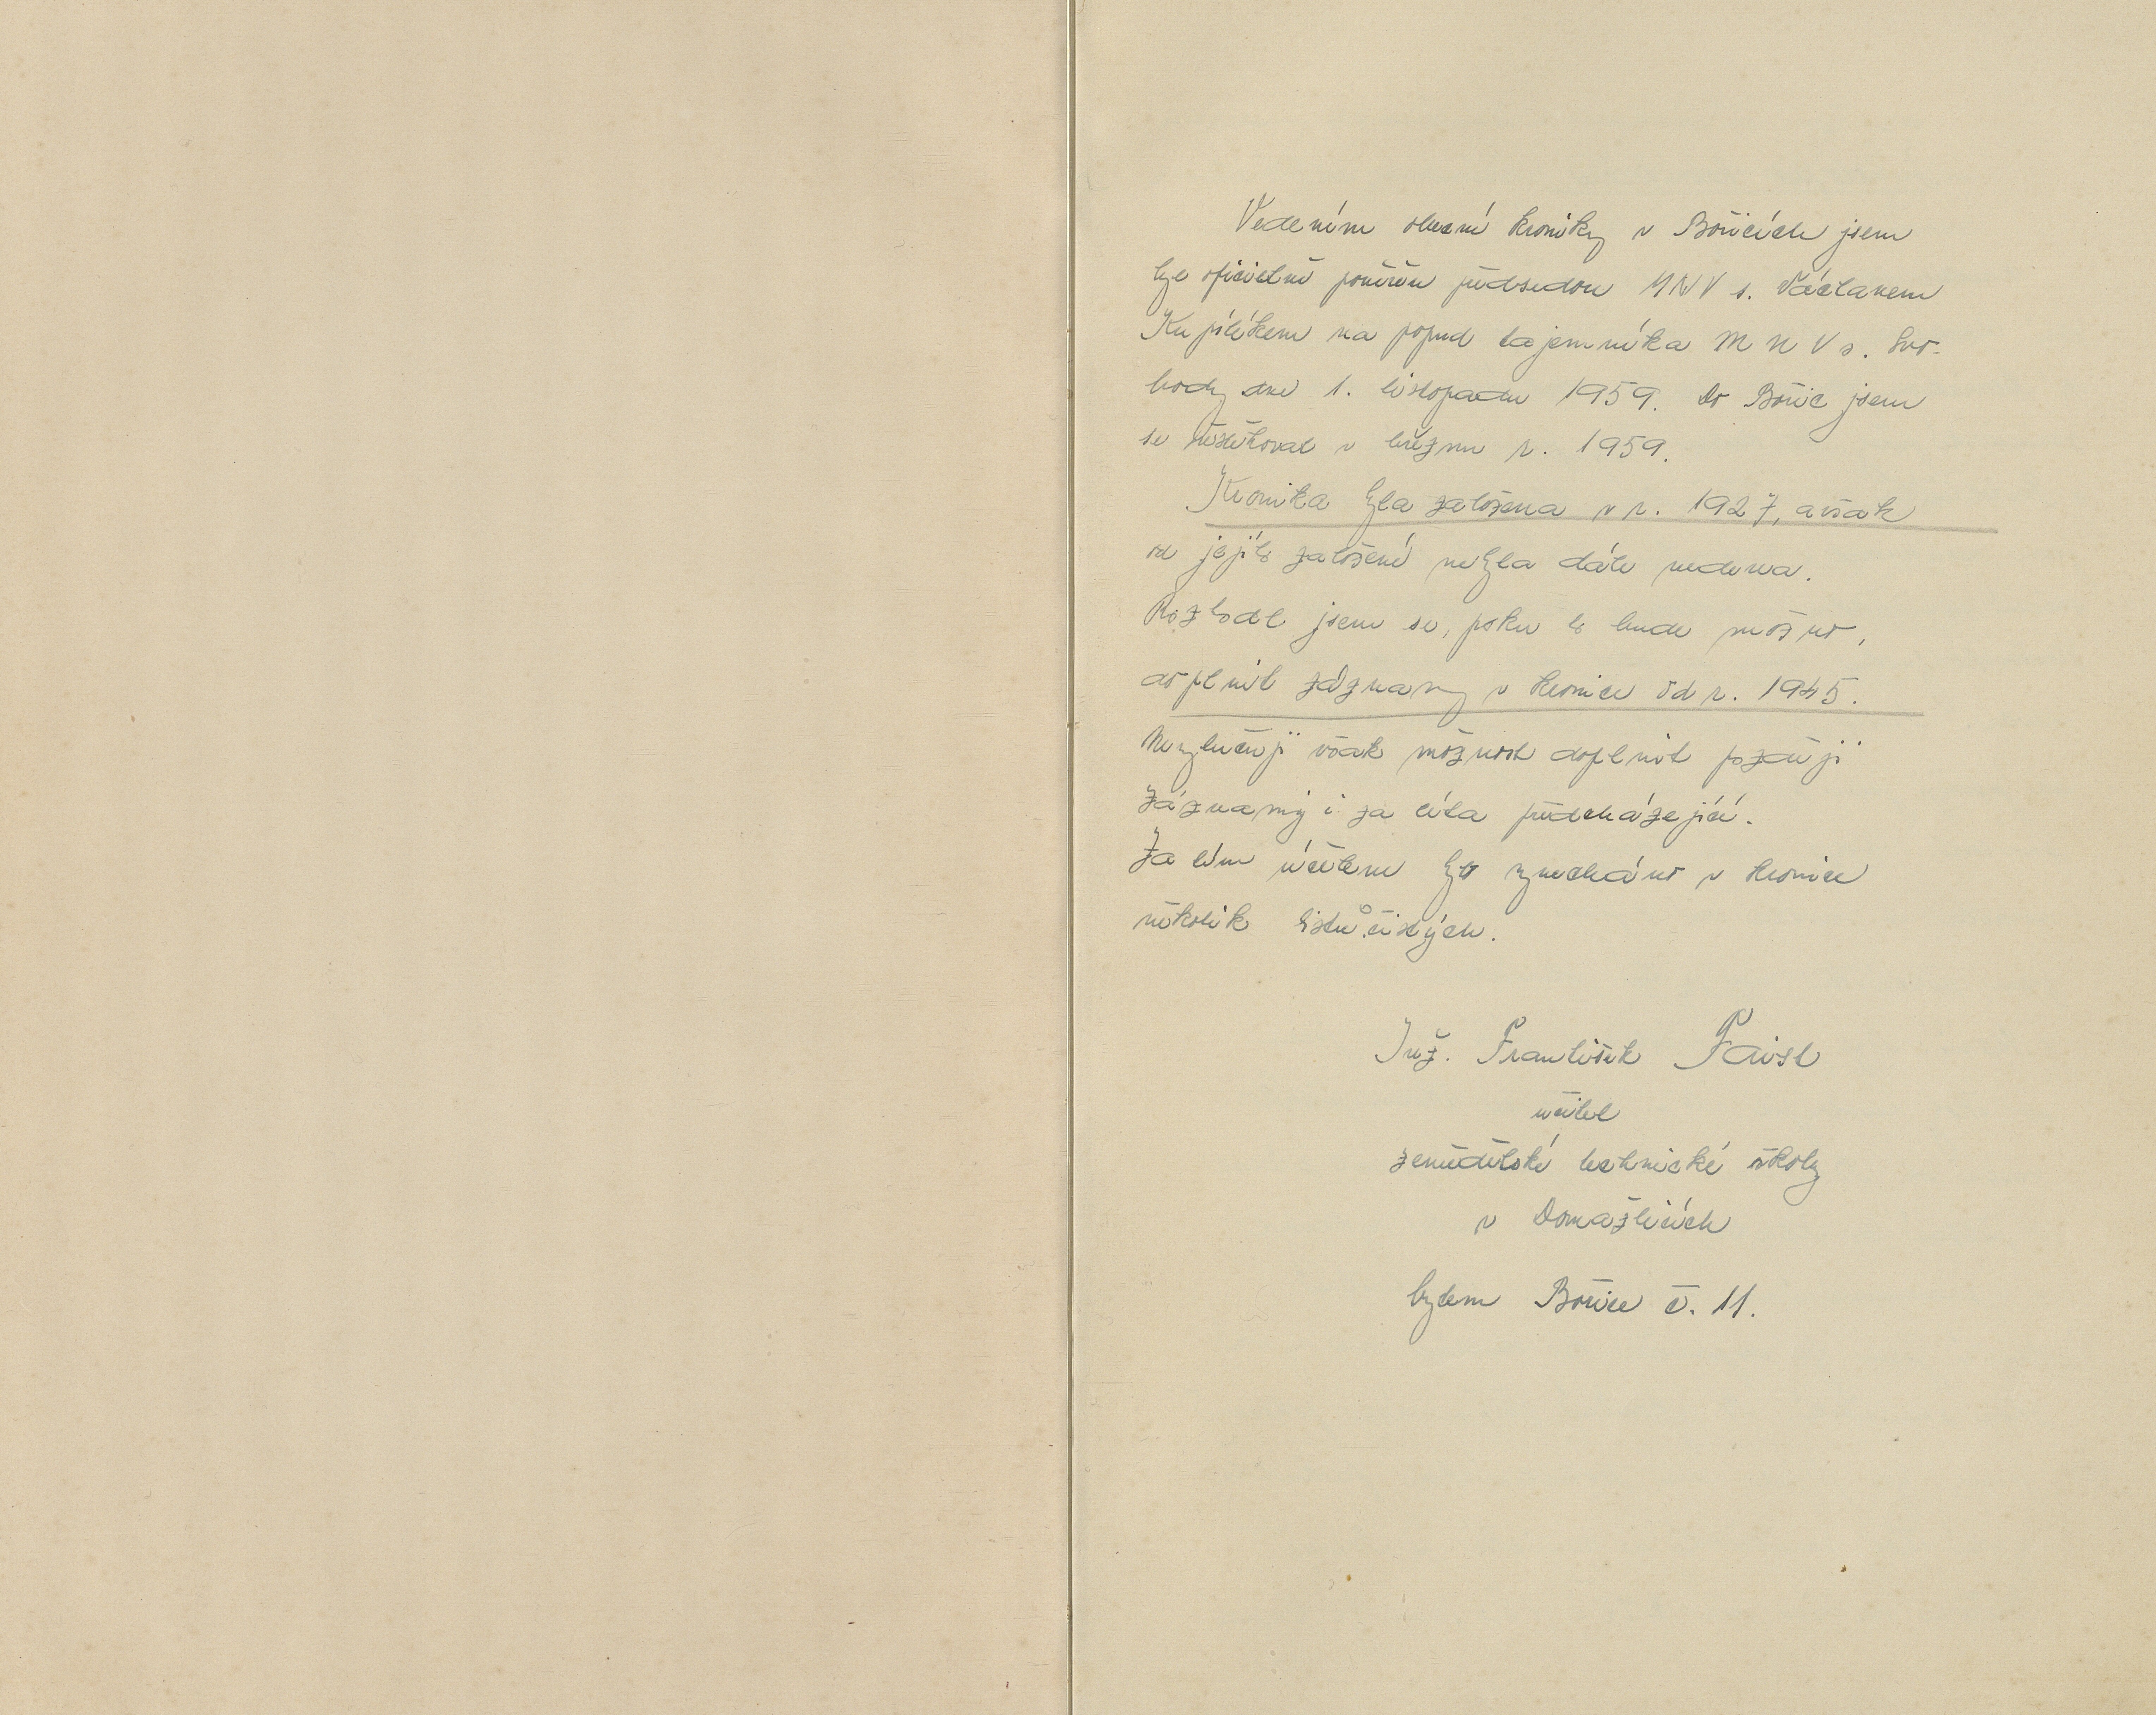 Vedením obecní kroniky v Bořicích jsem
byl oficielně pověřen předsedou MNV s. Václavem
Kupilíkem na popud tajemníka MNV s. Svo-
body dne 1. listopadu 1959. Do Bořic jsem
se přestěhoval v březnu r. 1959.
Kronika byla založena v r. 1927, avšak
od jejího založení nebyla dále vedena.
Rozhodl jsem se, pokud to bude možno,
doplnit záznamy v kronice od r. 1945.
Nevylučuji však možnost doplnit později
záznamy i za léta předcházející.
Za tím účelem bylo vynecháno v kronice
několik listů čistých.
Inž. František Faist
učitel
zemědělské technické školy
v Domažlicích
bytem Bořice č. 11.